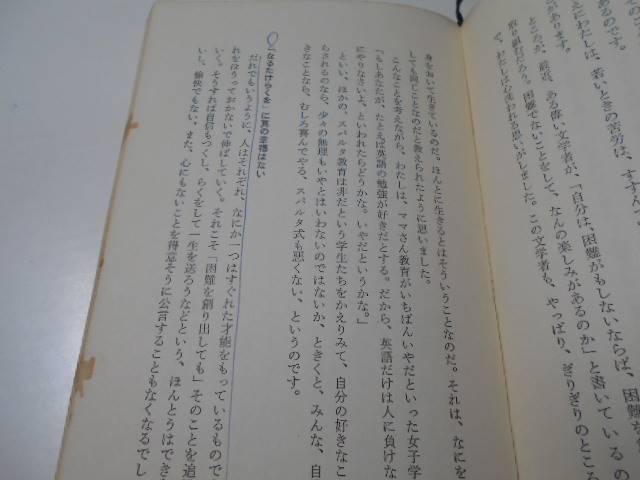 あるのです。
えにわたしは、若いときの苦労は、すすん
があります。
ところが、最近、ある偉い文学者が、「自分は、困難がもしないならば、困難
取り組むだろう。困難でないことをして、なんの楽しみがあるのか」と書いている
て、わたしは心洗われる思いがしました。この文学者も、やっぱり、ぎりぎりのところ
身をおいて生きているのだ。ほんとに生きるとはそういうことなのだ。それは、なにを
しても同じことなのだと教えられたように思いました。
こんなことを考えながら、わたしは、ママさん教育がいちばんいやだといった女子学
「もしあなたが、たとえば英語の勉強が好きだとする。だから、英語だけは人に負けな
にやりなさいよ、といわれたらどうかな。いやだというかな。」
といい、ほかの、スパルタ教育は非だという学生たちをかえりみて、自分の好きなこ
もされるのなら、少々の無理もいやとはいわないのではないか、ときくと、みんな、自
きなことなら、むしろ喜んでやる、スパルタ式も悪くない、というのです。
「なるたけらくを」に真の幸福はない
だれでもいうように、人はそれぞれ、なにか一つはすぐれた才能をもっているもので
れをほうっておかないで伸ばしていく。それこそ「困難を創り出しても」そのことを追
いく。そうすれば自信もつくし、らくをして一生を送ろうなどという、ほんとうはでき
いし、愉快でもない、また、心にもないことを得意そうに公言することもなくなるでし